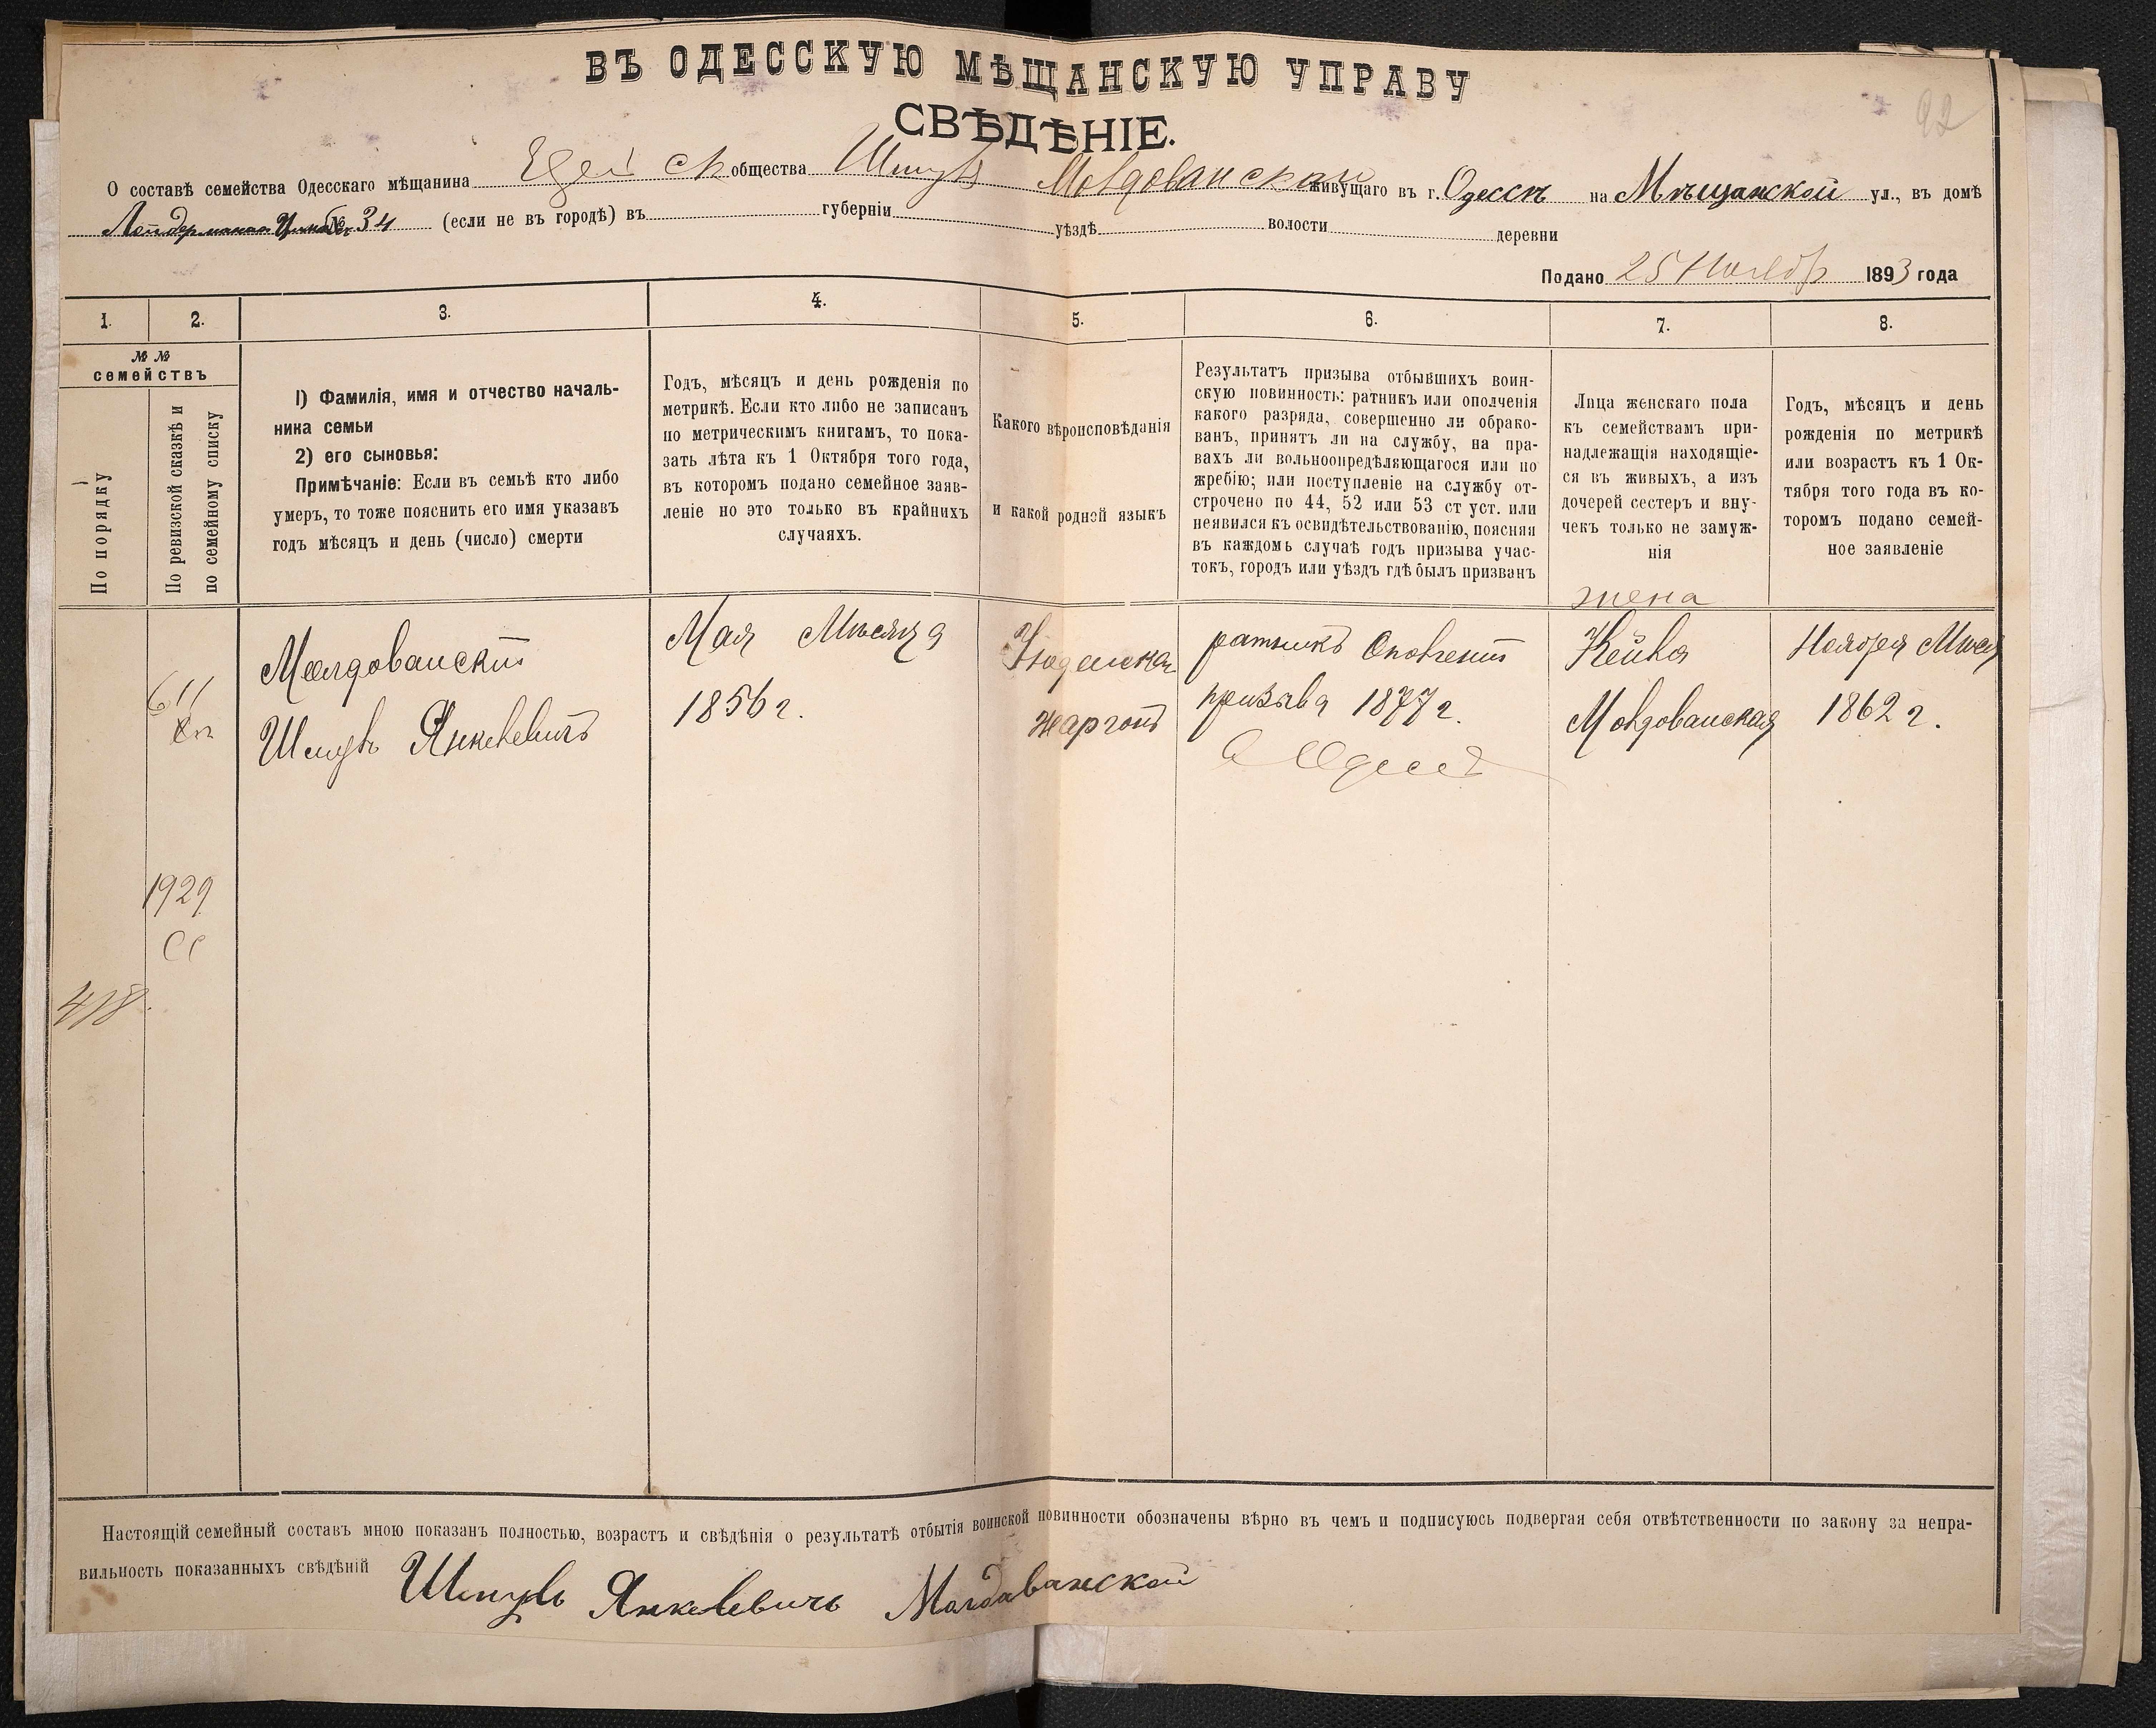 ВЪ ОДЕССКУЮ МѢЩАНСКУЮ УПРАВУ
СВѢДѢНІЕ.
92
О составѣ семейства Одесскаго мѣщанина общества Шмуль Молдованской живущаго въ г. Одессѣ на Мѣщанской ул., въ домѣ
№ 34 (если не въ городѣ) въ губерніи уѣздѣ волости деревни
Подано 25 Ноября 1893 года
1. 2. 3. 4. 5. 6. 7. 8.
№ №
семействъ
По порядку
По ревизской сказкѣ и
по семейному списку
1) Фамилія, имя и отчество началь-
ника семьи
2) его сыновья:
Примѣчаніе: Если въ семьѣ кто либо
умеръ, то тоже пояснить его имя указавъ
годъ мѣсяцъ и день (число) смерти
Годъ, мѣсяцъ и день рожденія по
метрикѣ. Если кто либо не записанъ
по метрическимъ книгамъ, то пока-
зать лѣта къ 1 Октября того года,
въ которомъ подано семейное заяв-
леніе но это только въ крайнихъ
случаяхъ.
Какого вѣроисповѣданія
и какой родной языкъ
Результатъ призыва отбывшихъ воин-
скую повинность: ратникъ или ополченія
какого разряда, совершенно ли обрако-
ванъ, принятъ ли на службу, на пра-
вахъ ли вольноопредѣляющагося или по
жребію; или поступленіе на службу от-
строчено по 44, 52 или 53 ст уст. или
неявился къ освидѣтельствованію, поясняя
въ каждомъ случаѣ годъ призыва учас-
токъ, городъ или уѣздъ гдѣ былъ призванъ
Лица женскаго пола
къ семействамъ при-
надлежащія находящіе-
ся въ живыхъ, а изъ
дочерей сестеръ и вну-
чекъ только не замуж-
нія
Годъ, мѣсяцъ и день
рожденія по метрикѣ
или возрастъ къ 1 Ок-
тября того года въ ко-
торомъ подано семей-
ное заявленіе
611
Молдованскій
Шмуль Янкелевичъ
Мая Мѣсяца
1856 г.
Іюдейская
жаргонъ
ратникъ Ополченія
призыва 1877 г.
Одесса
жена
Кейля
Молдованская
Ноября Мѣся
1862 г.
1929
418
Настоящій семейный составъ мною показанъ полностью, возрастъ и свѣдѣнія о результатѣ отбытія воинской повинности обозначены вѣрно въ чемъ и подписуюсь подвергая себя отвѣтственности по закону за непра-
вильность показанныхъ свѣдѣній Шмуль Янкелевичь Молдаванской